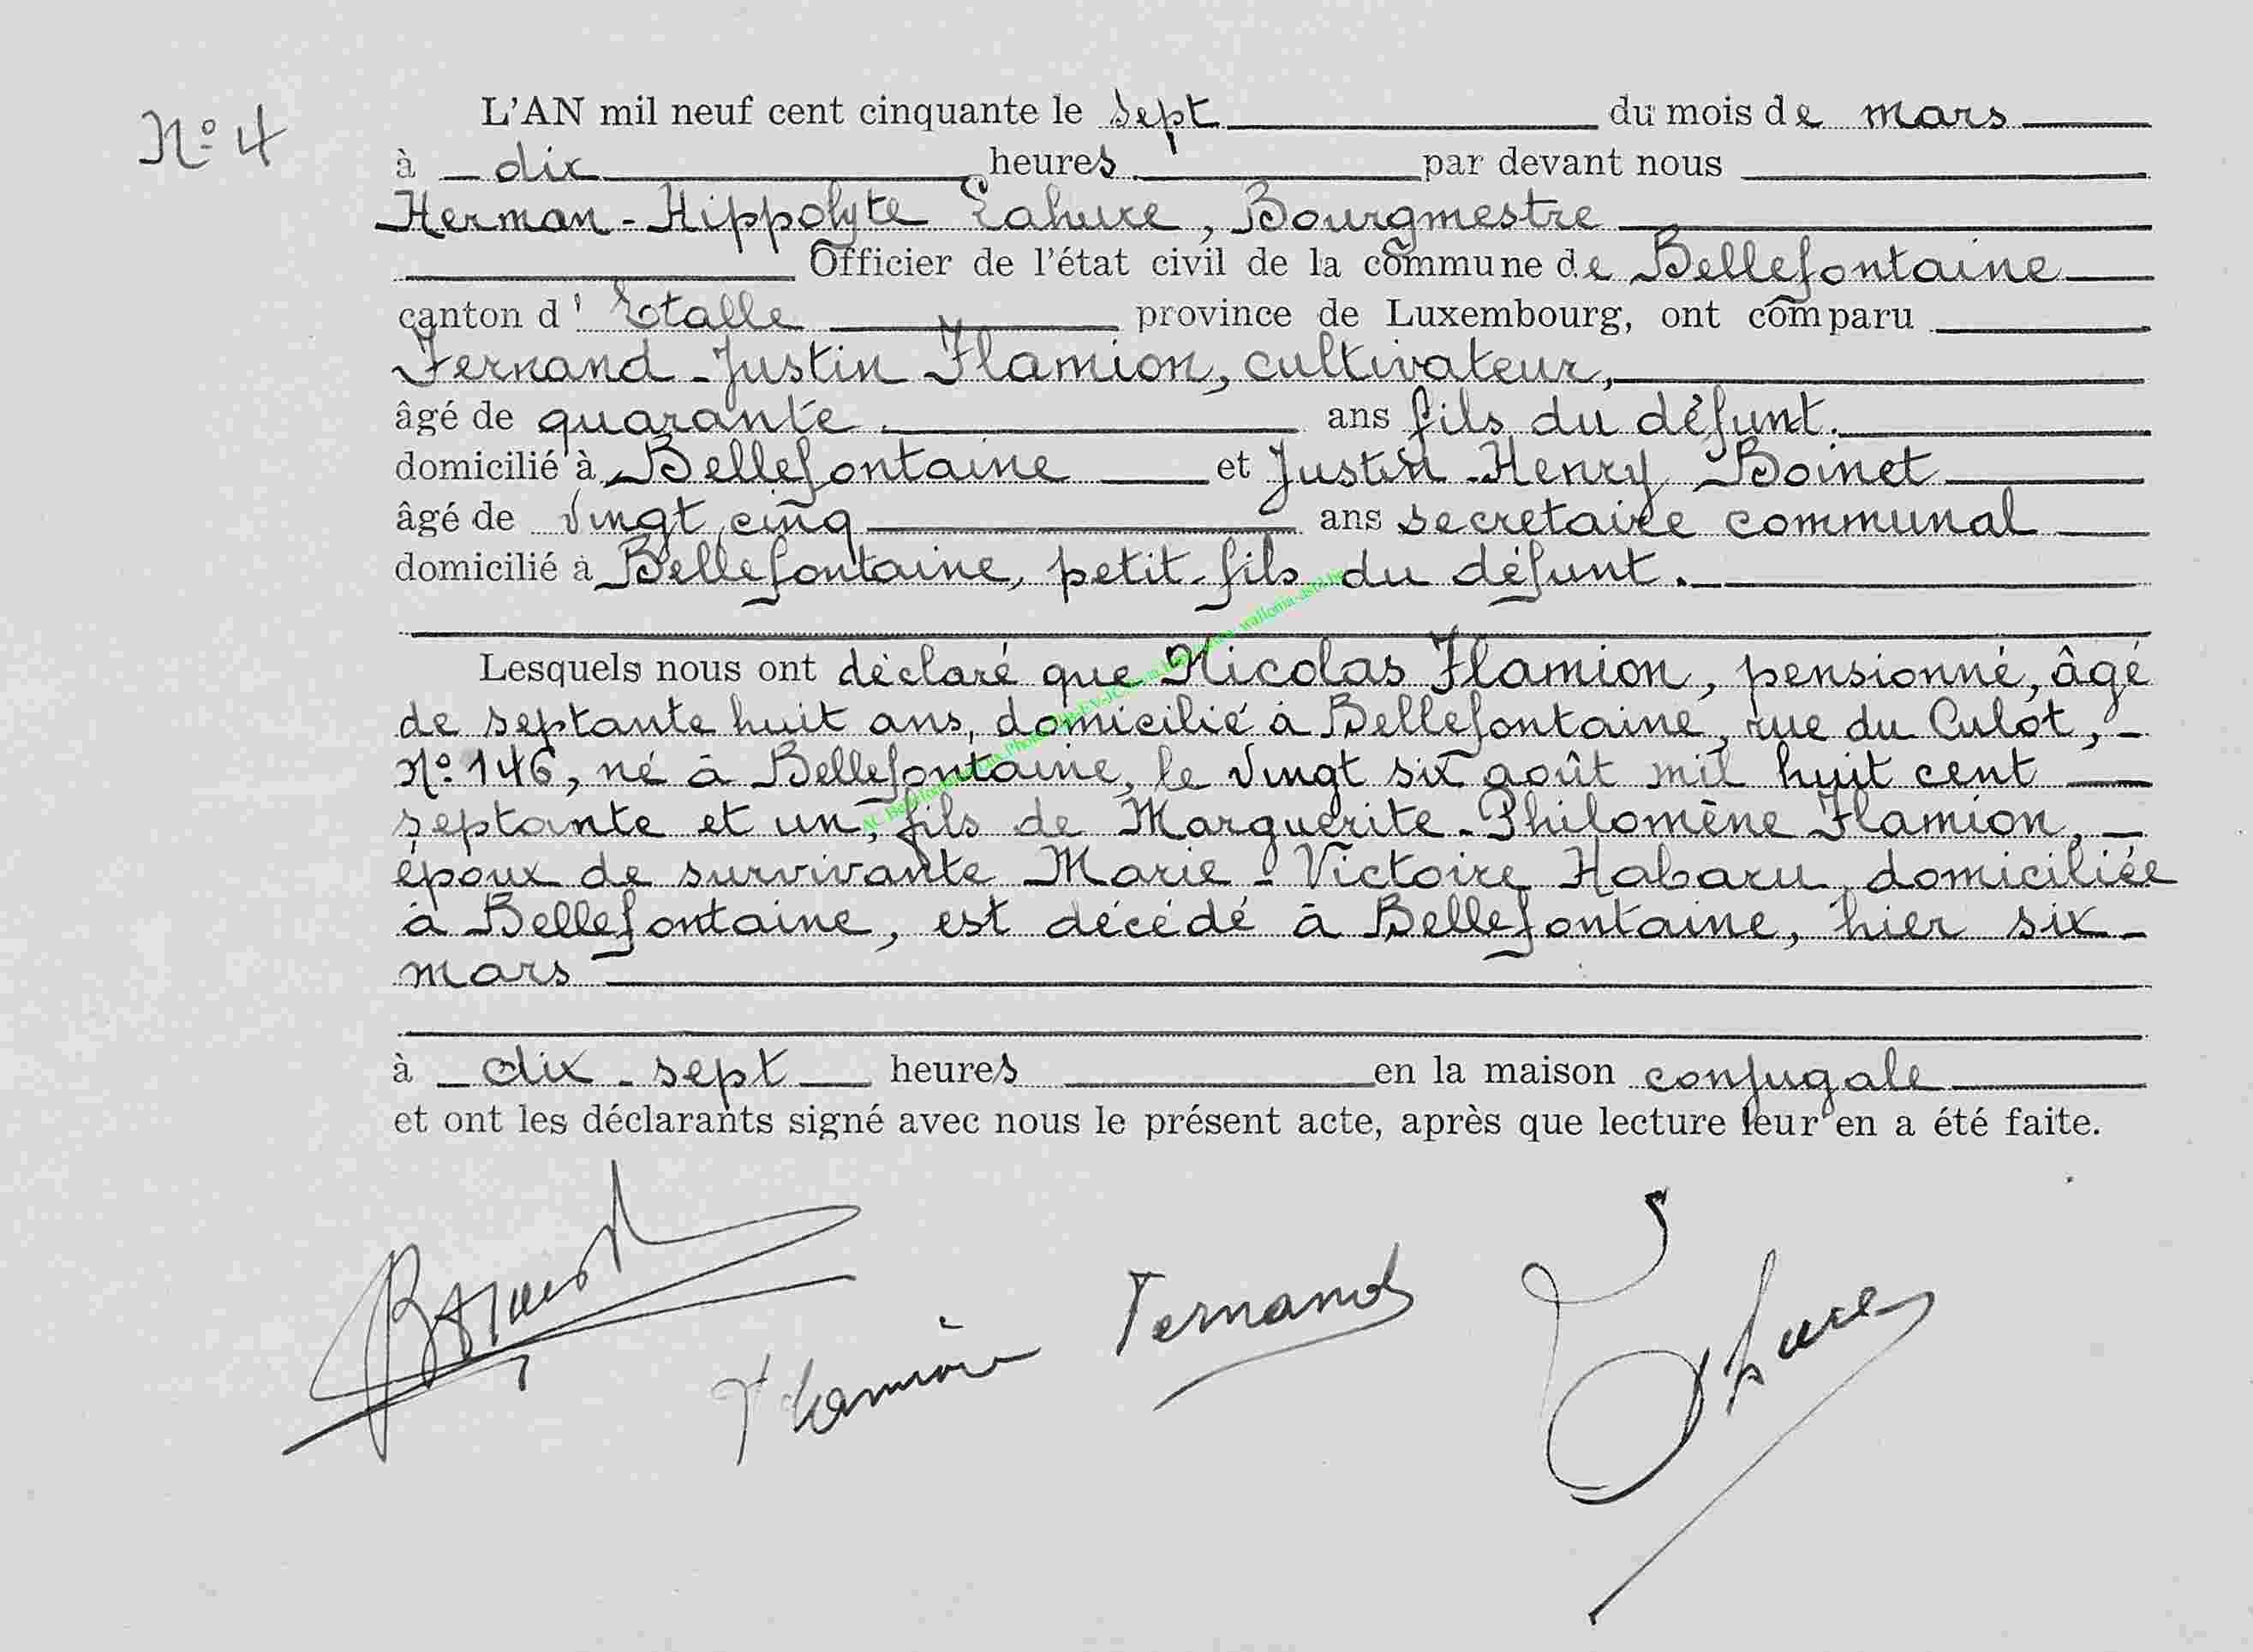 N° 4
L'AN mil neuf cent cinquante le sept du mois de mars
à dix heures par devant nous
Herman-Hippolyte Lahure, Bourgmestre
Officier de l'état civil de la commune de Bellefontaine
canton d' Etalle province de Luxembourg, ont comparu
Fernand-Justin Flamion, cultivateur,
âgé de quarante ans fils du défunt.
domicilié à Bellefontaine et Justin-Henry Boinet
âgé de vingt cinq ans secretaire communal
domicilié à Bellefontaine, petit-fils du défunt.
Lesquels nous ont déclaré que Nicolas Flamion, pensionné, âgé
de septante huit ans, domicilié à Bellefontaine, rue du Culot,
N° 146, né à Bellefontaine, le vingt six août mil huit cent
septante et un, fils de Marguerite-Philomène Flamion,
époux de survivante Marie-Victoire Habaru, domiciliée
à Bellefontaine, est décédé à Bellefontaine, hier six
mars
à dix-sept heures en la maison conjugale
et ont les déclarants signé avec nous le présent acte, après que lecture leur en a été faite.
Flamion Fernand
Lahure